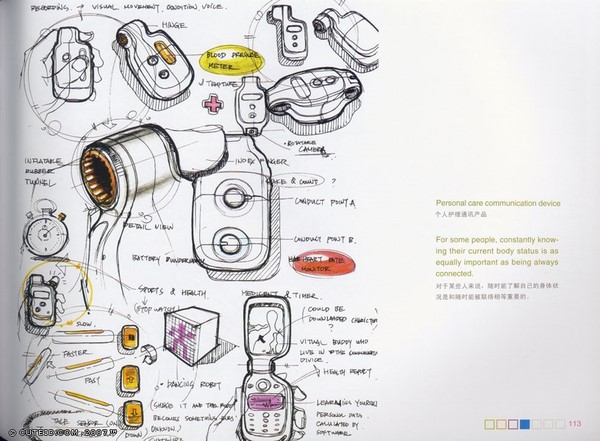 RECORDING. → VISUAL. MOVEMENT. CONDITION. VOICE.
HINGE
BLOOD PRESSURE
METER
ROTATABLE
CAMERA
INFLATABLE
RUBBER
TUNNEL
INDEX FINGER
& COUNT ?
CONDUCT POINT A.
DETAIL VIEW
CONDUCT POINT B.
BATTERY
HEART RATE
MONITOR
SPORTS & HEALTH.
(STOP WATCH)
& TIMER.
SLOW.
FASTER
FAST
COULD BE
DOWNLOADED CHARACTER
?
VIRTUAL BUDDY WHO
LIVE IN THE
DIVICE.
HEALTH REPORT
DANCING ROBOT
(SHAKE IT AND THE
BECOMES SOMETHING
UNKNOWN.
DOWN
PERSONAL DATA
CALCULATED BY
SOFTWARE
Personal care communication device
个人护理通讯产品
For some people, constantly know-
ing their current body status is as
equally important as being always
connected.
对于某些人来说，随时能了解自己的身体状
况是和随时能被联络相等重要的。
113
© CUTEDD.COM, 2007.